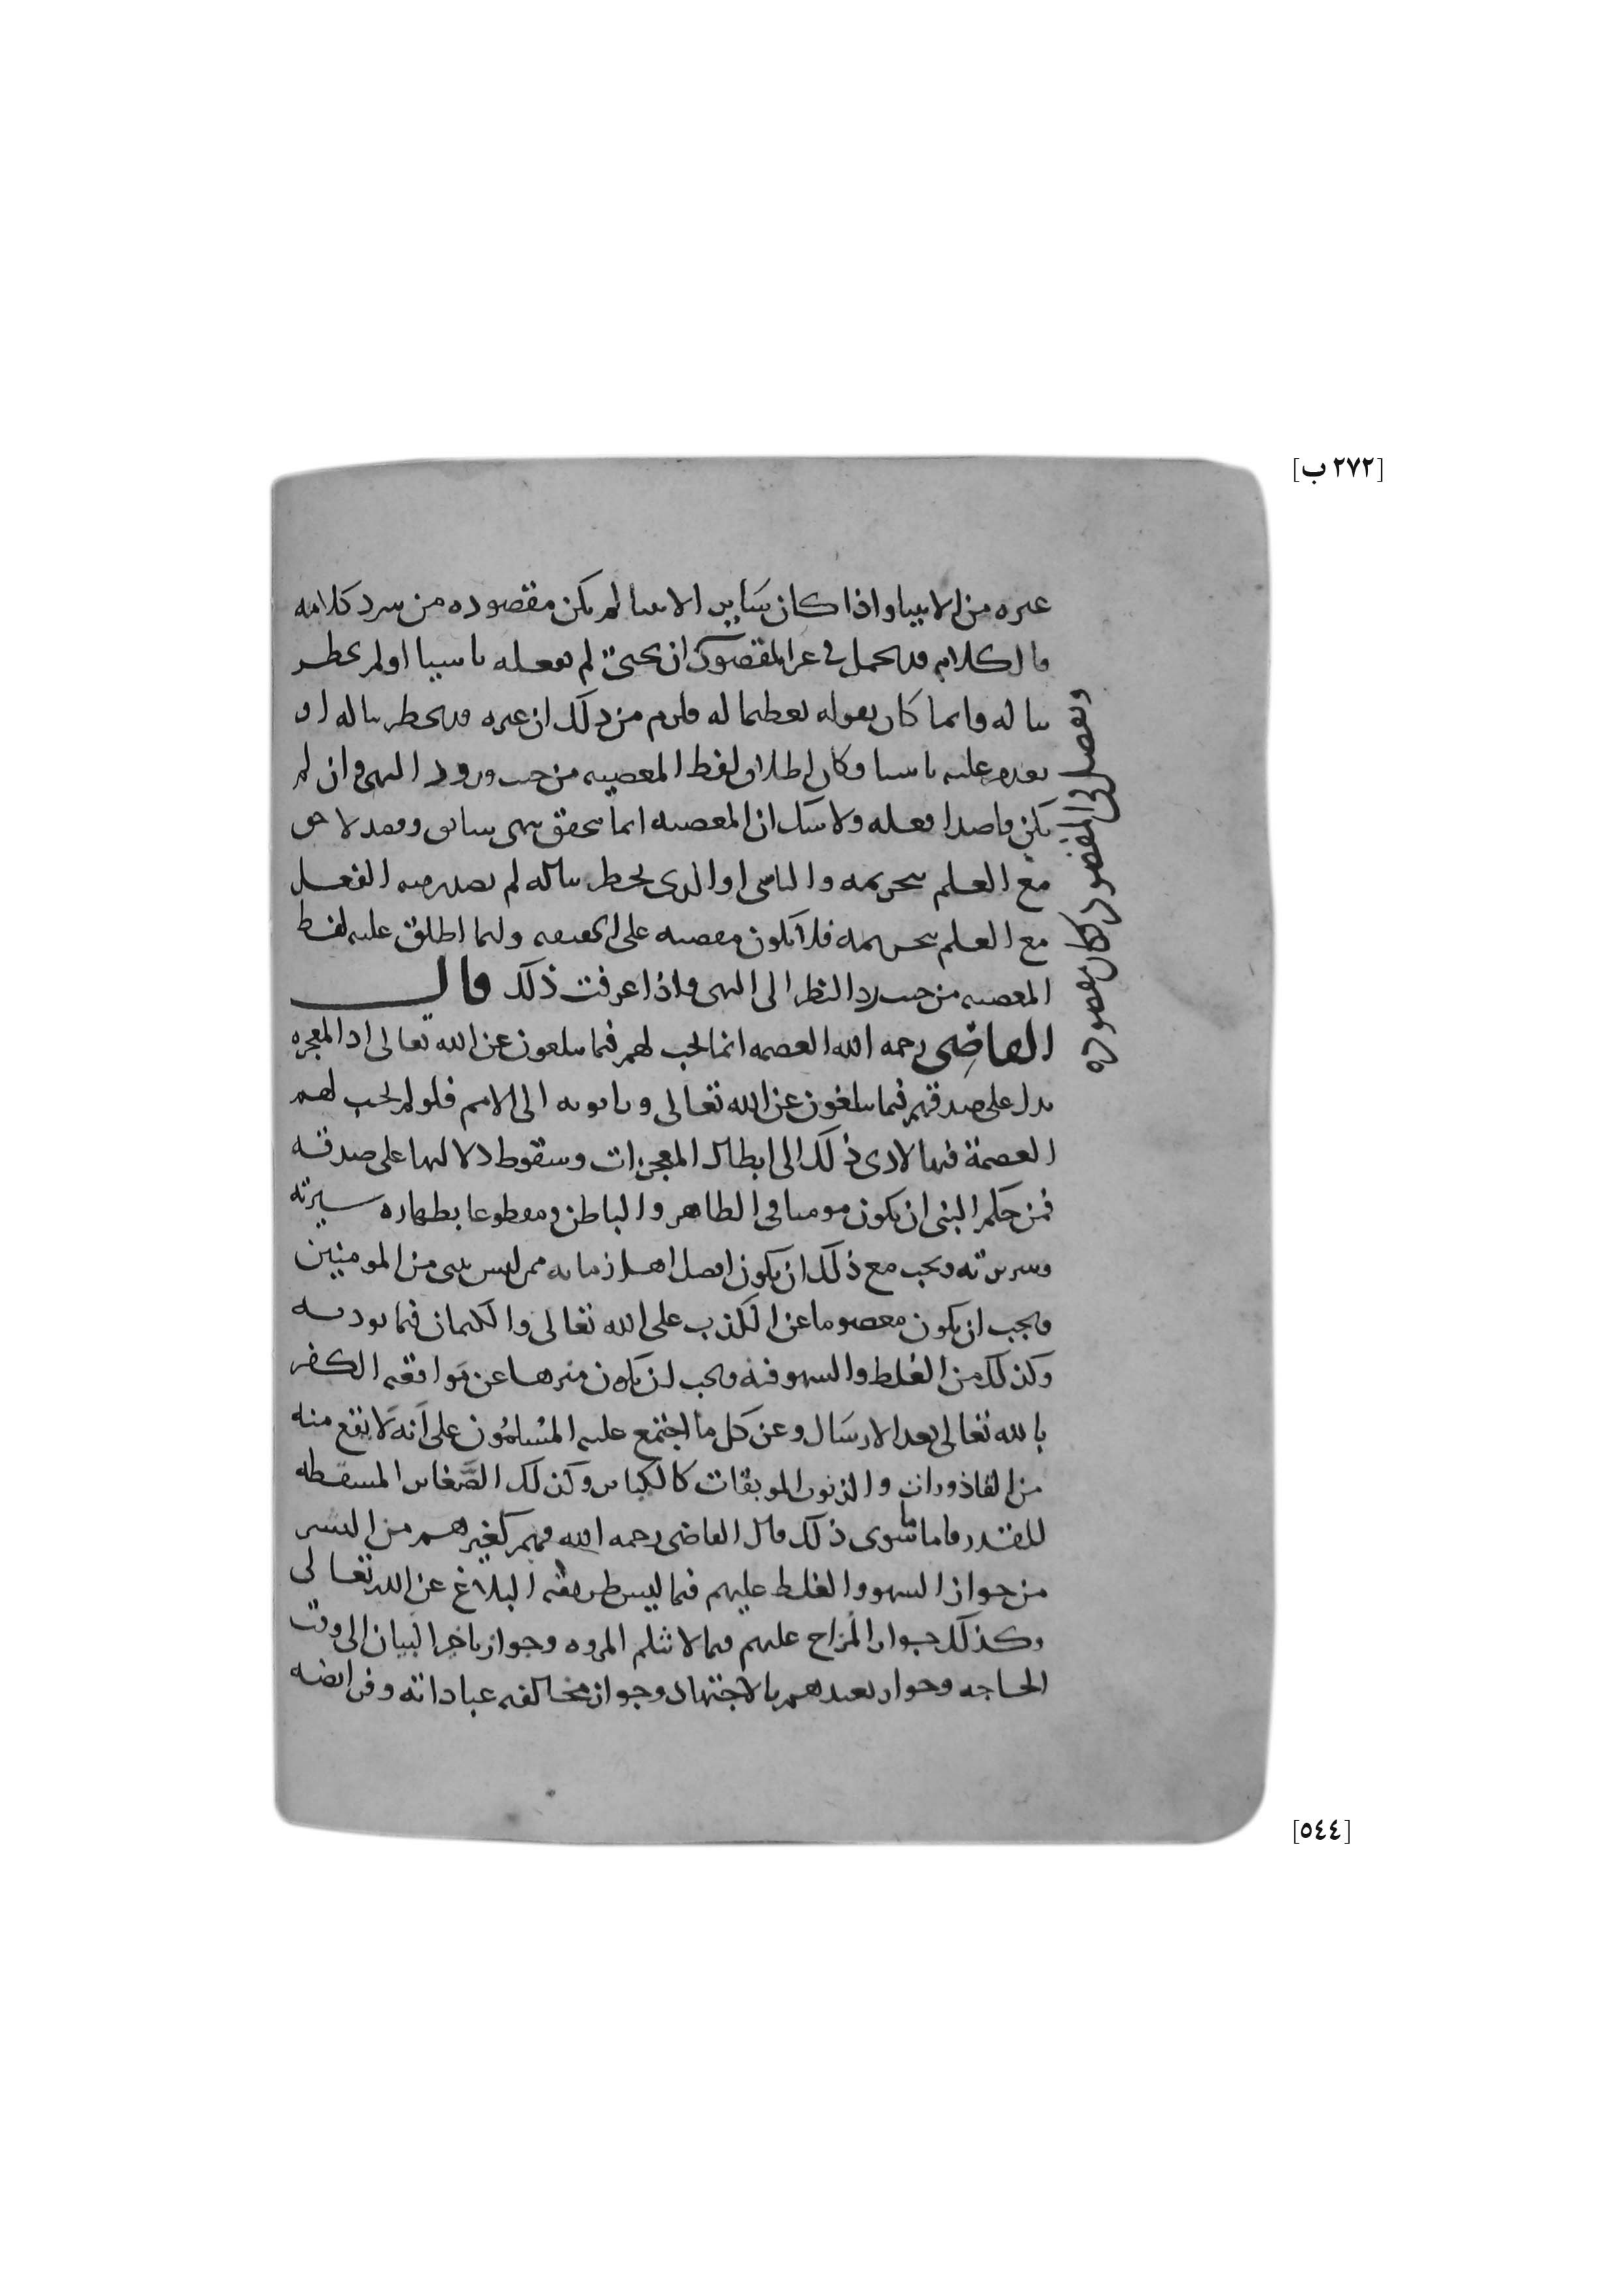 [٢٧٢ ب]
غيره من الانبيا واذا كان سَاير الانبيا لم يكن مقصوده من سرد كلامه
فالكلام قد يحمل في غير المقصود ان يحيى لم يفعله ناسيا او لم يخطر
بباله وانما كان يقوله تعظيما له فلزم من ذلك ان غيره قد يخطر بباله او
يقدم عليه ناسيا وكان اطلاق لفظ المعصيه من حيث ورود النهي وان لم
يكن قاصدا فعله ولا شك ان المعصيه انما تتحقق بنهي سابق وقصد لاحق
مع العلم بتحريمه والناسي او الذي يخطر بباله لم يصدر منه الفعل
مع العلم بتحريمه فلا يكون معصيه على الحقيقه وانما اطلق عليه لفظ
المعصيه من حيث النظر الى النهي واذا عرفت ذلك قال
القاضي رحمه الله العصمه انما تجب لهم فيما يبلغون عن الله تعالى اذ المعجزه
تدل على صدقهم فيما يبلغون عن الله تعالى وياتون به الى الامم فلو لم تجب لهم
العصمة فيها لادى ذلك الى ابطال المعجزات وسقوط دلالتها على صدقه
فمن حكم النبي ان يكون مومنا في الظاهر والباطن ومقطوعا بطهاره سيرته
وسريرته ويجب مع ذلك ان يكون افضل اهل زمانه ممن ليس بنبي من المومنين
ويجب ان يكون معصوما عن الكذب على الله تعالى والكتمان فيما يوديه
وكذلك من الغلط والسهو فيه ويجب ان يكون منزها عن مواقعه الكفر
بالله تعالى بعد الارسَال وعن كل ما اجتمع عليه المسُلمُون على اَنه لَا يقع منه
من القاذورات والذنوب الموبقات كالكباير وكذلك الصَّغاير المسقطه
للقدر فاما ما سوى ذلك قال القاضي رحمه الله فهم كغيرهم من البشر
من جواز السهو والغلط عليهم فيما ليس طريقه البلاغ عن الله تعالى
وكذلك جواز المزاح عليهم فيما لا يثلم المروه وجواز تاخير البيان الى وقت
الحاجه وجواز تعبدهم بالاجتهاد وجواز مخالفه عباداته وفرايضه
[٥٤٤]